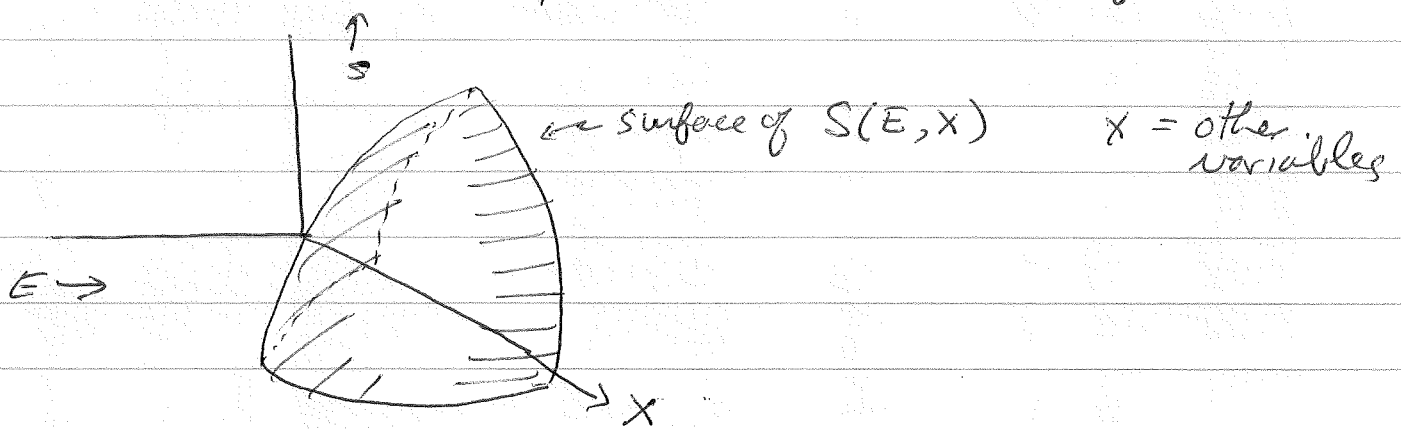 ↑
S
← surface of S(E,X)
X = other variables
E →
X